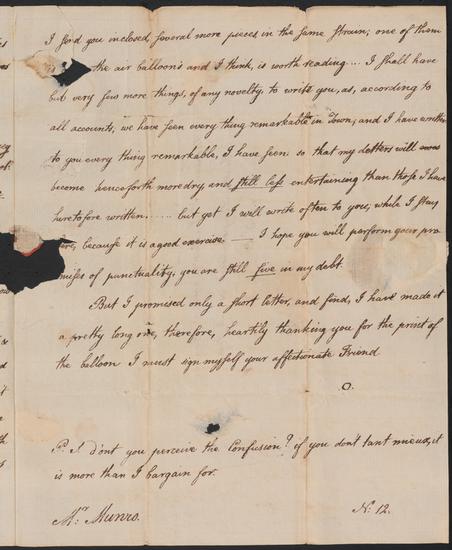 I send you inclosed several more pieces in the same strain; one of them
the air balloon's and I think, is worth reading.... I shall have
but very few more things, of any novelty, to write you, as, according to
all accounts, we have seen every thing remarkable in Town, and I have written
to you every thing remarkable, I have seen. so that my letters will
become henceforth more dry, and still less entertaining than those I have
heretofore written...... but yet I will write often to you, while I stay
here, because it is a good exercise. — I hope you will perform your pro
misses of punctuality. you are still five in my debt.
But I promised only a short letter, and find, I have made it
a pretty long one, therefore, heartily thanking you for the print of
the balloon I must sign myself your affectionate Friend
O.
P. S. d'ont you perceive the Confusion? if you don't tant mieux, it
is more than I bargain for.
Mr: Munro.
No: 12.